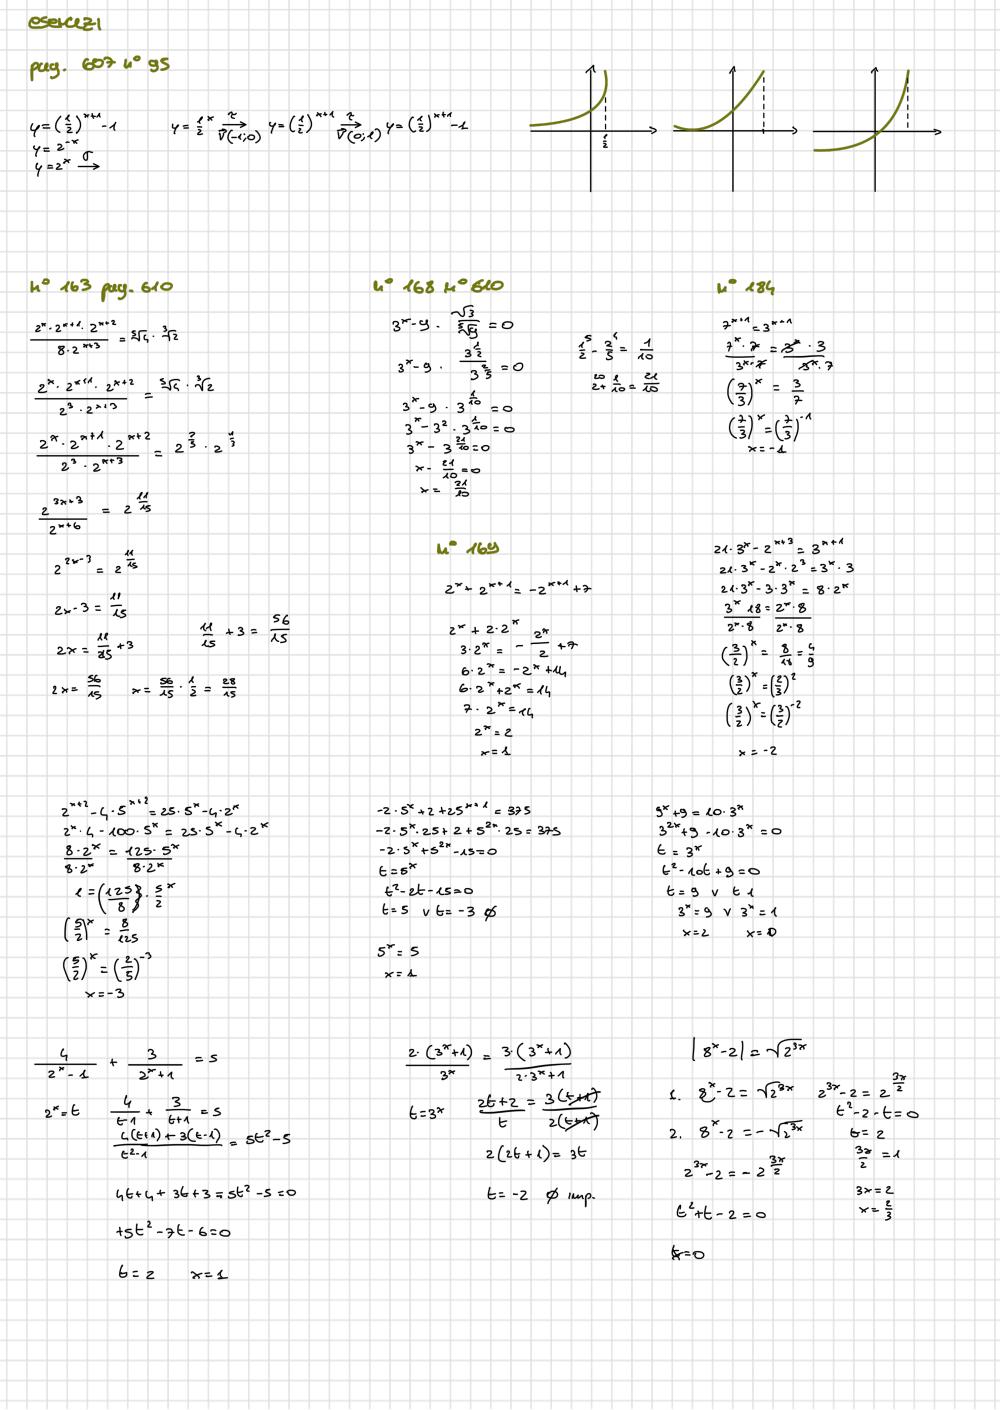 esercizi
pag. 607 n° 95
y=(1/2)^(x+1) -1
y= 2^(-x)
y=2^x →σ
y= 1/2^x →τ v(-1;0) y=(1/2)^(x+1) →τ v(0;1) y=(1/2)^(x+1) -1
1/2
n° 163 pag. 610
(2^x·2^(x+1)·2^(x+2))/(8·2^(x+3)) = ⁵√4 · ³√2
(2^x·2^(x+1)·2^(x+2))/(2^3·2^(x+3)) = ⁵√4 · ³√2
(2^x·2^(x+1)·2^(x+2))/(2^3·2^(x+3)) = 2^(2/5) · 2^(1/3)
2^(3x+3)/2^(x+6) = 2^(11/15)
2^(2x-3) = 2^(11/15)
2x-3 = 11/15
2x = 11/15 +3
11/15 +3 = 56/15
2x= 56/15 x= 56/15 · 1/2 = 28/15
n° 168 n° 610
3^x-9 · √3/⁵√9 = 0
3^x-9 · 3^(1/2)/3^(2/5) =0
3^x-9 · 3^(1/10) =0
3^x-3^2 · 3^(1/10)=0
3^x-3^(21/10)=0
x- 21/10=0
x= 21/10
1/2 - 2/5 = 1/10
2+ 1/10 = 21/10
n° 184
7^(x+1)=3^(x+1)
(7^x·7)/(3^x·7) = (3^x·3)/(3^x·7)
(7/3)^x = 3/7
(7/3)^x=(7/3)^-1
x=-1
n° 169
2^x+2^(x+1) = -2^(x+1)+7
2^x+2·2^x
3·2^x = - 2^x/2 +7
6·2^x = -2^x+14
6·2^x+2^x=14
7·2^x=14
2^x=2
x=1
21·3^x-2^(x+3)=3^(x+1)
21·3^x-2^x·2^3=3^x·3
21·3^x-3·3^x=8·2^x
(3^x 18)/(2^x·8)=(2^x·8)/(2^x·8)
(3/2)^x = 8/18 = 4/9
(3/2)^x=(2/3)^2
(3/2)^x=(3/2)^-2
x=-2
2^(x+2)-4·5^(x+2)=25·5^x-4·2^x
2^x·4-100·5^x=25·5^x-4·2^x
(8·2^x)/(8·2^x) = (125·5^x)/(8·2^x)
1=(125/8)·5/2^x
(5/2)^x = 8/125
(5/2)^x=(2/5)^-3
x=-3
-2·5^x+2+25^(x+1)=375
-2·5^x·25+2+5^(2x)·25=375
-2·5^x+5^(2x)-15=0
t=5^x
t²-2t-15=0
t=5 v t=-3 ∅
5^x=5
x=1
9^x+9=10·3^x
3^(2x)+9-10·3^x=0
t=3^x
t²-10t+9=0
t=9 v t 1
3^x=9 v 3^x=1
x=2 x=0
4/(2^x-1) + 3/(2^x+1) =5
2^x=t 4/(t-1) + 3/(t+1) =5
(4(t+1)+3(t-1))/(t²-1) = 5t²-5
4t+4+3t+3=5t²-5=0
+5t²-7t-6=0
t=2 x=1
(2·(3^x+1))/3^x = (3·(3^x+1))/(2·3^x+1)
t=3^x (2t+2)/t = (3(t+1))/(2(t+1))
2(2t+1)=3t
t=-2 ∅ imp.
|8^x-2|=√2^(3x)
1. 8^x-2=√2^(3x) 2^(3x)-2=2^(3x/2)
t²-2-t=0
2. 8^x-2=-√2^(3x) t=2
2^(3x)-2=-2^(3x/2) 3x/2=1
3x=2
t²+t-2=0 x=2/3
x=0